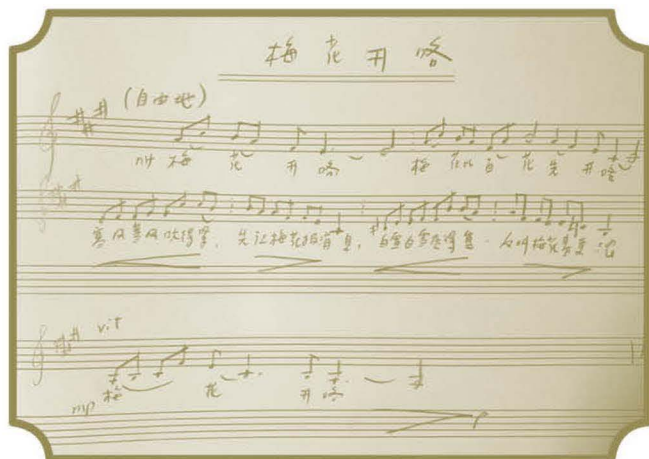 梅花开咯
(自由地)
叫梅花开咯 梅花比百花先开咯
寒风寒风吹得紧，先让梅花报消息，白雪白雪 叫梅花
rit
mp 梅花开咯 p